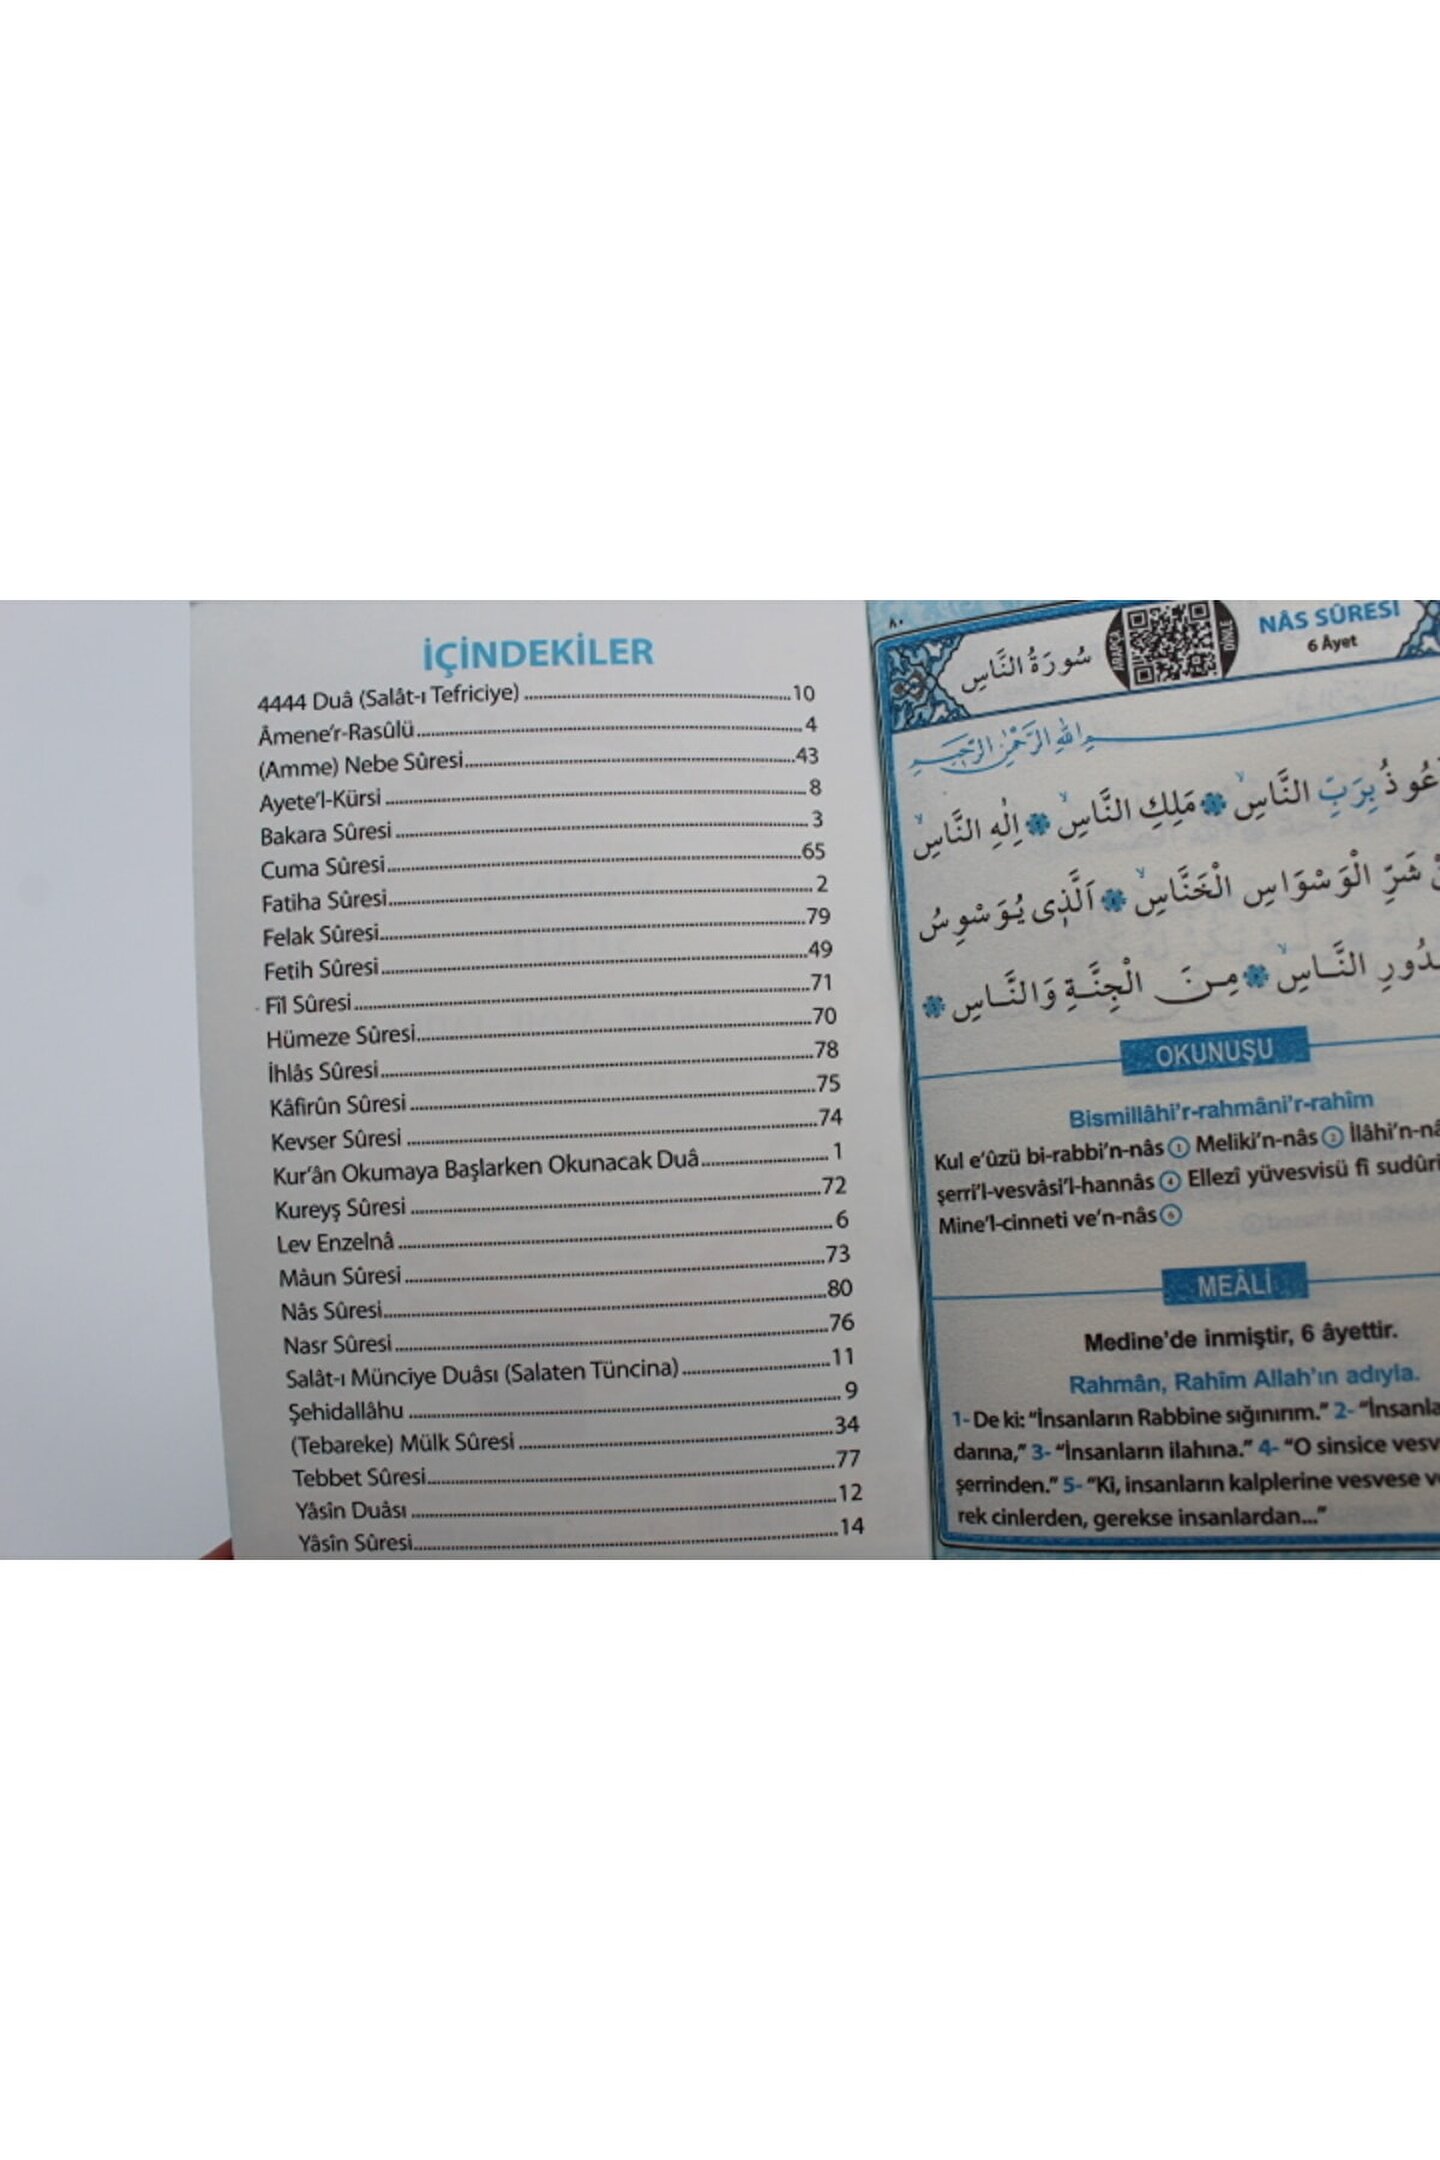 İÇİNDEKİLER
4444 Duâ (Salât-ı Tefriciye) 10
Âmene'r-Rasûlü 4
(Amme) Nebe Sûresi 43
Ayete'l-Kürsi 8
Bakara Sûresi 3
Cuma Sûresi 65
Fatiha Sûresi 2
Felak Sûresi 79
Fetih Sûresi 49
Fîl Sûresi 71
Hümeze Sûresi 70
İhlâs Sûresi 78
Kâfirûn Sûresi 75
Kevser Sûresi 74
Kur'ân Okumaya Başlarken Okunacak Duâ 1
Kureyş Sûresi 72
Lev Enzelnâ 6
Mâun Sûresi 73
Nâs Sûresi 80
Nasr Sûresi 76
Salât-ı Münciye Duâsı (Salaten Tüncina) 11
Şehidallâhu 9
(Tebareke) Mülk Sûresi 34
Tebbet Sûresi 77
Yâsîn Duâsı 12
Yâsîn Sûresi 14
٨٠
سُورَةُ النَّاسِ
ARAPÇA
DİNLE
NÂS SÛRESİ
6 Âyet
اللهِ الرَّحْمٰنِ الرَّحِيمِ
بِرَبِّ النَّاسِۙ ﴿١﴾ مَلِكِ النَّاسِۙ ﴿٢﴾ اِلٰهِ النَّاسِۙ
شَرِّ الْوَسْوَاسِ الْخَنَّاسِۙ ﴿٤﴾ اَلَّذ۪ى يُوَسْوِسُ
النَّاسِۙ ﴿٥﴾ مِنَ الْجِنَّةِ وَالنَّاسِ ﴿٦﴾
OKUNUŞU
Bismillâhi'r-rahmâni'r-rahîm
Kul e'ûzü bi-rabbi'n-nâs 1 Meliki'n-nâs 2 İlâhi'n-nâ
şerri'l-vesvâsi'l-hannâs 4 Ellezî yüvesvisü fî sudûri
Mine'l-cinneti ve'n-nâs 6
MEÂLİ
Medine'de inmiştir, 6 âyettir.
Rahmân, Rahîm Allah'ın adıyla.
1- De ki: “İnsanların Rabbine sığınırım.” 2- “İnsanla
darına,” 3- “İnsanların ilahına.” 4- “O sinsice vesv
şerrinden.” 5- “Ki, insanların kalplerine vesvese v
rek cinlerden, gerekse insanlardan...”